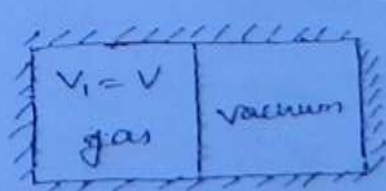 V₁ = V
gas
vacuum